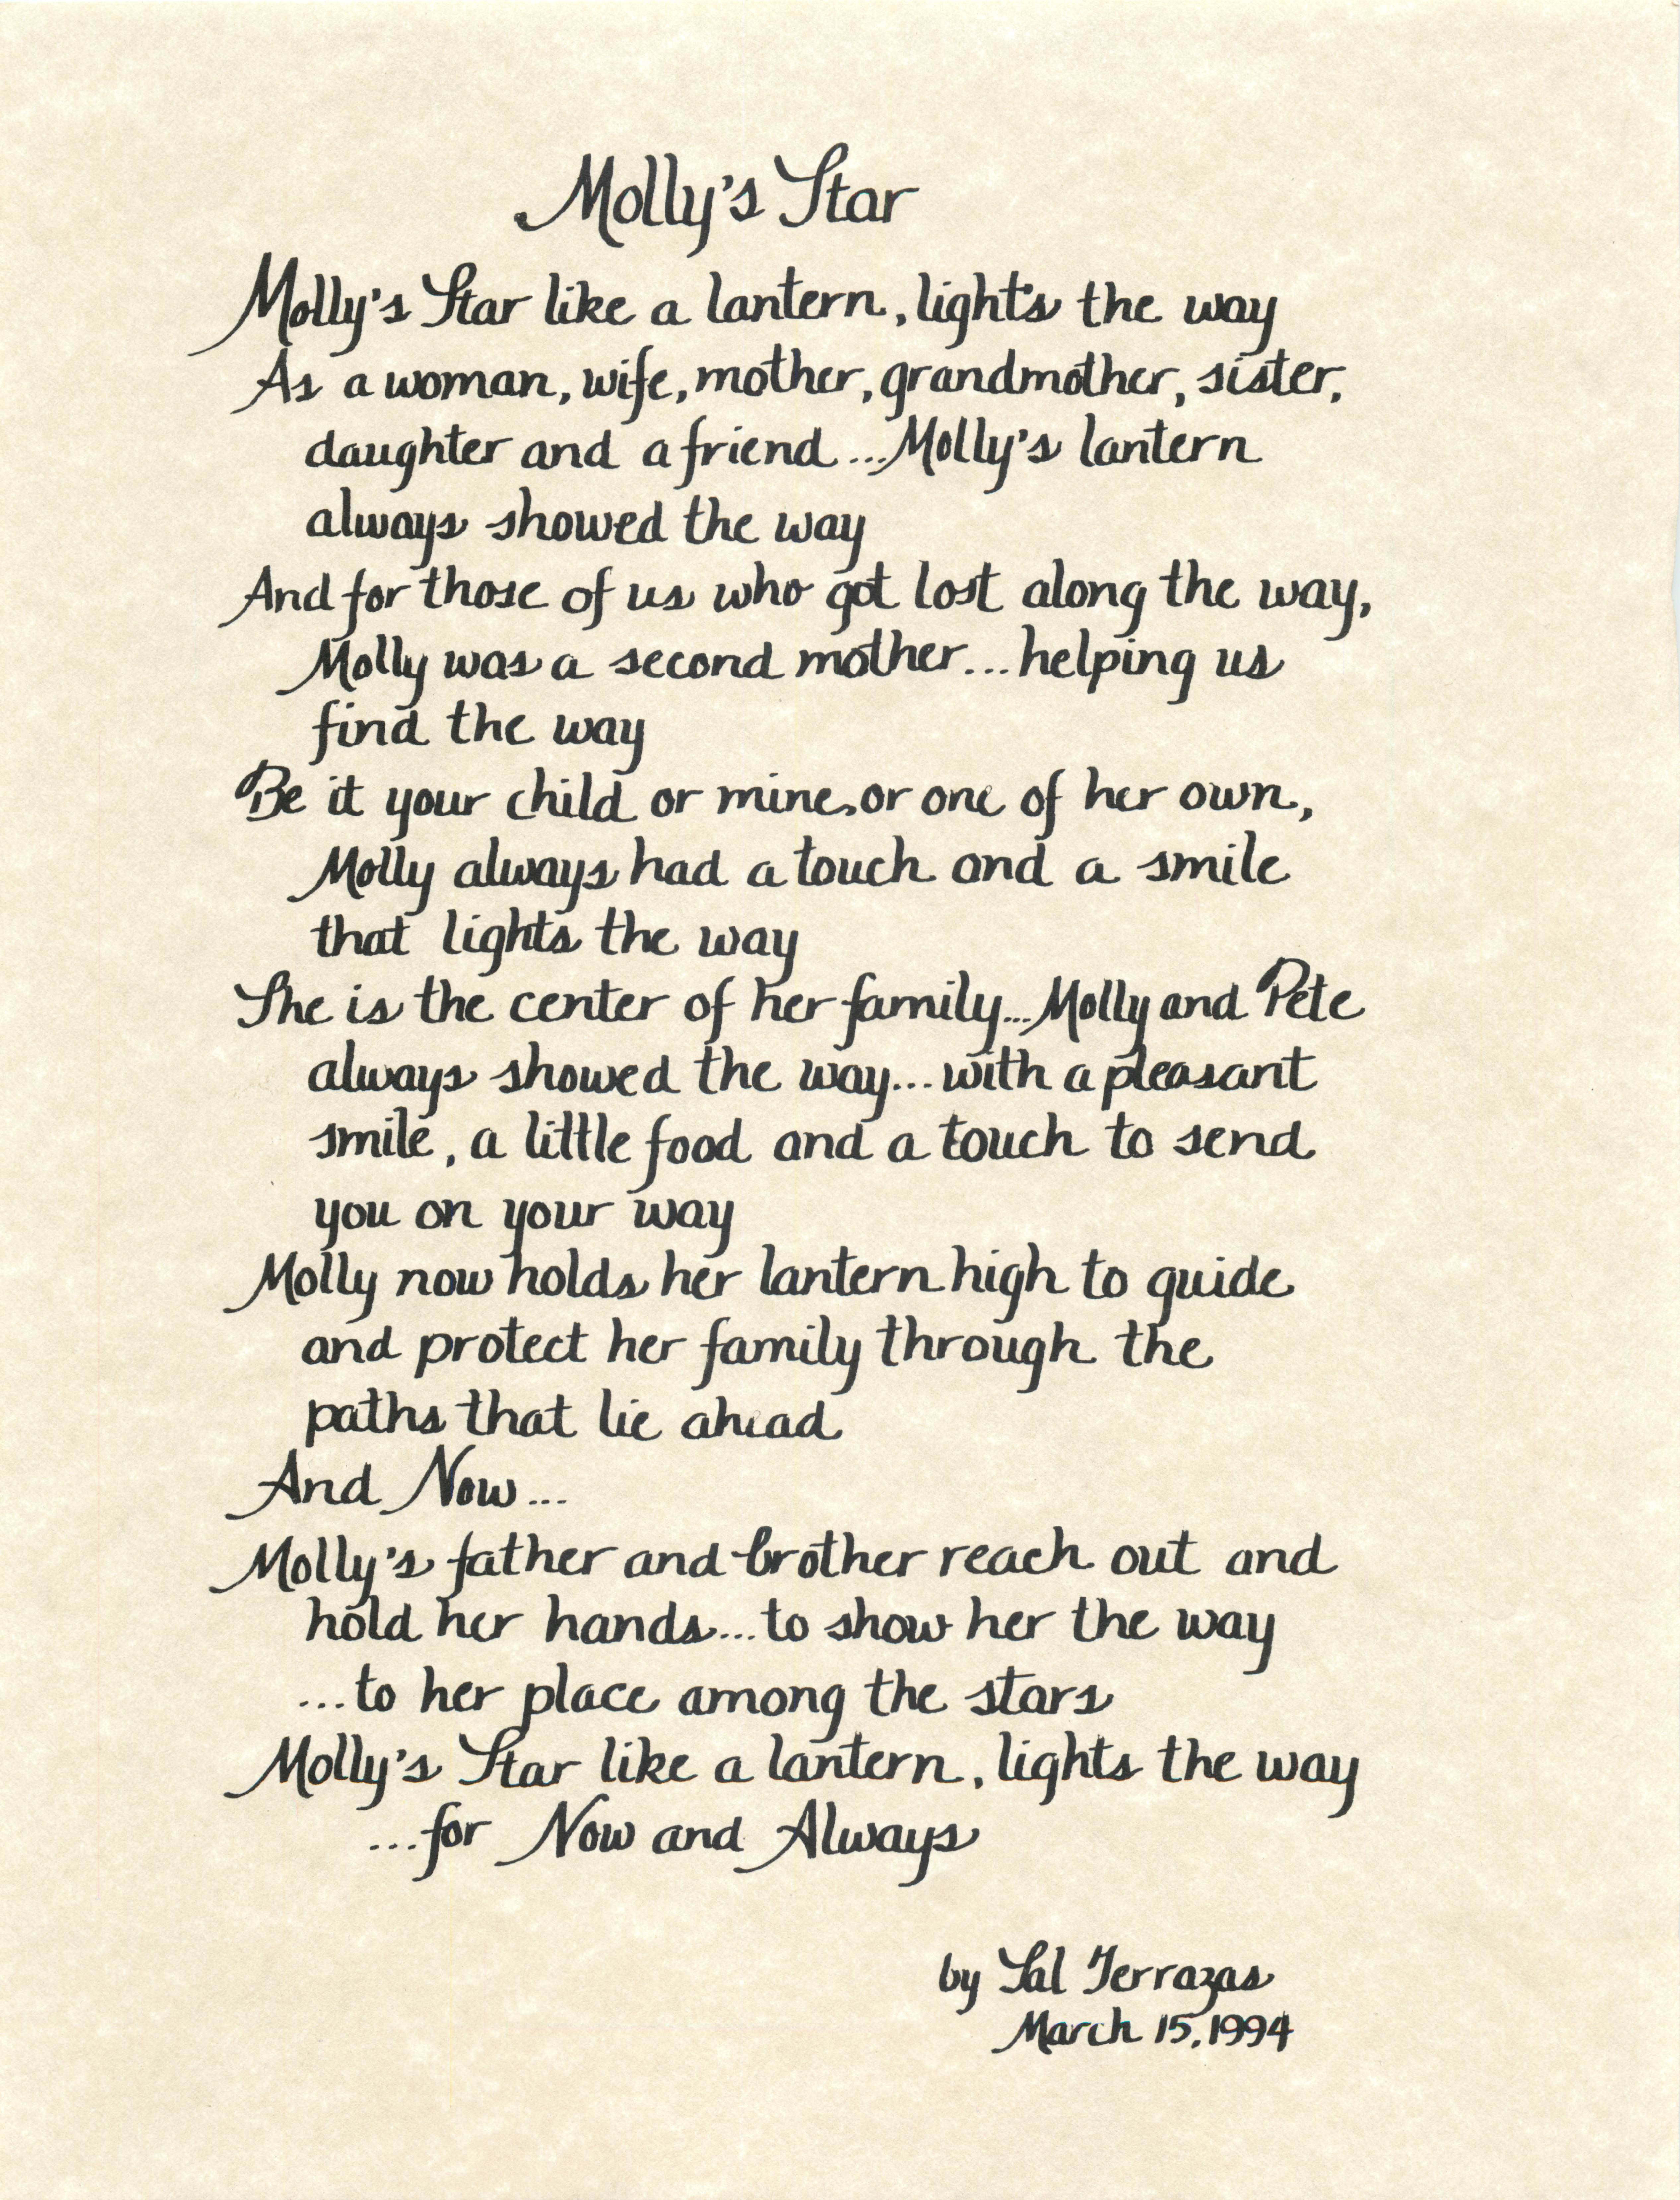 Molly's Star
Molly's Star like a lantern, lights the way
As a woman, wife, mother, grandmother, sister,
daughter and a friend...Molly's lantern
always showed the way
And for those of us who got lost along the way,
Molly was a second mother...helping us
find the way
Be it your child or mine, or one of her own,
Molly always had a touch and a smile
that lights the way
She is the center of her family...Molly and Pete
always showed the way...with a pleasant
smile, a little food and a touch to send
you on your way
Molly now holds her lantern high to guide
and protect her family through the
paths that lie ahead
And Now...
Molly's father and brother reach out and
hold her hands...to show her the way
...to her place among the stars
Molly's Star like a lantern, lights the way
...for Now and Always
by Sal Terrazas
March 15, 1994